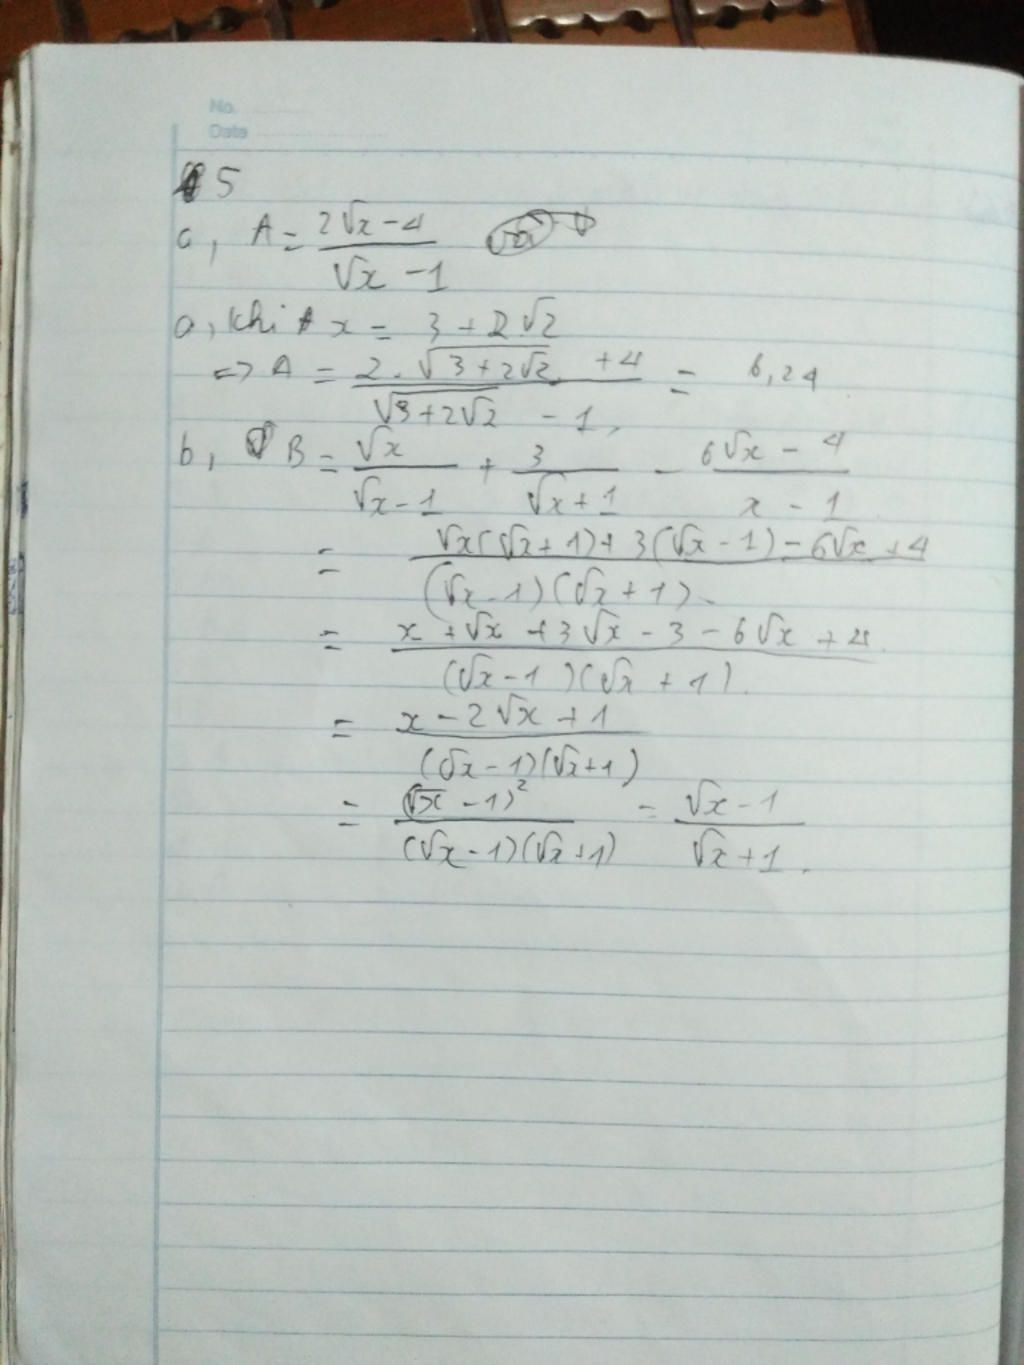 No.
Date
5
a, A = (2√x - 4)/(√x - 1)
a, khi x = 3 + 2√2
=> A = (2.√(3+2√2) + 4)/(√(3+2√2) - 1) = 6,24
b, B = √x/(√x - 1) + 3/(√x + 1) - (6√x - 4)/(x - 1)
= (√x(√x + 1) + 3(√x - 1) - 6√x + 4)/((√x - 1)(√x + 1))
= (x + √x + 3√x - 3 - 6√x + 4)/((√x - 1)(√x + 1)).
= (x - 2√x + 1)/((√x - 1)(√x + 1))
= (√x - 1)²/((√x - 1)(√x + 1)) = (√x - 1)/(√x + 1).